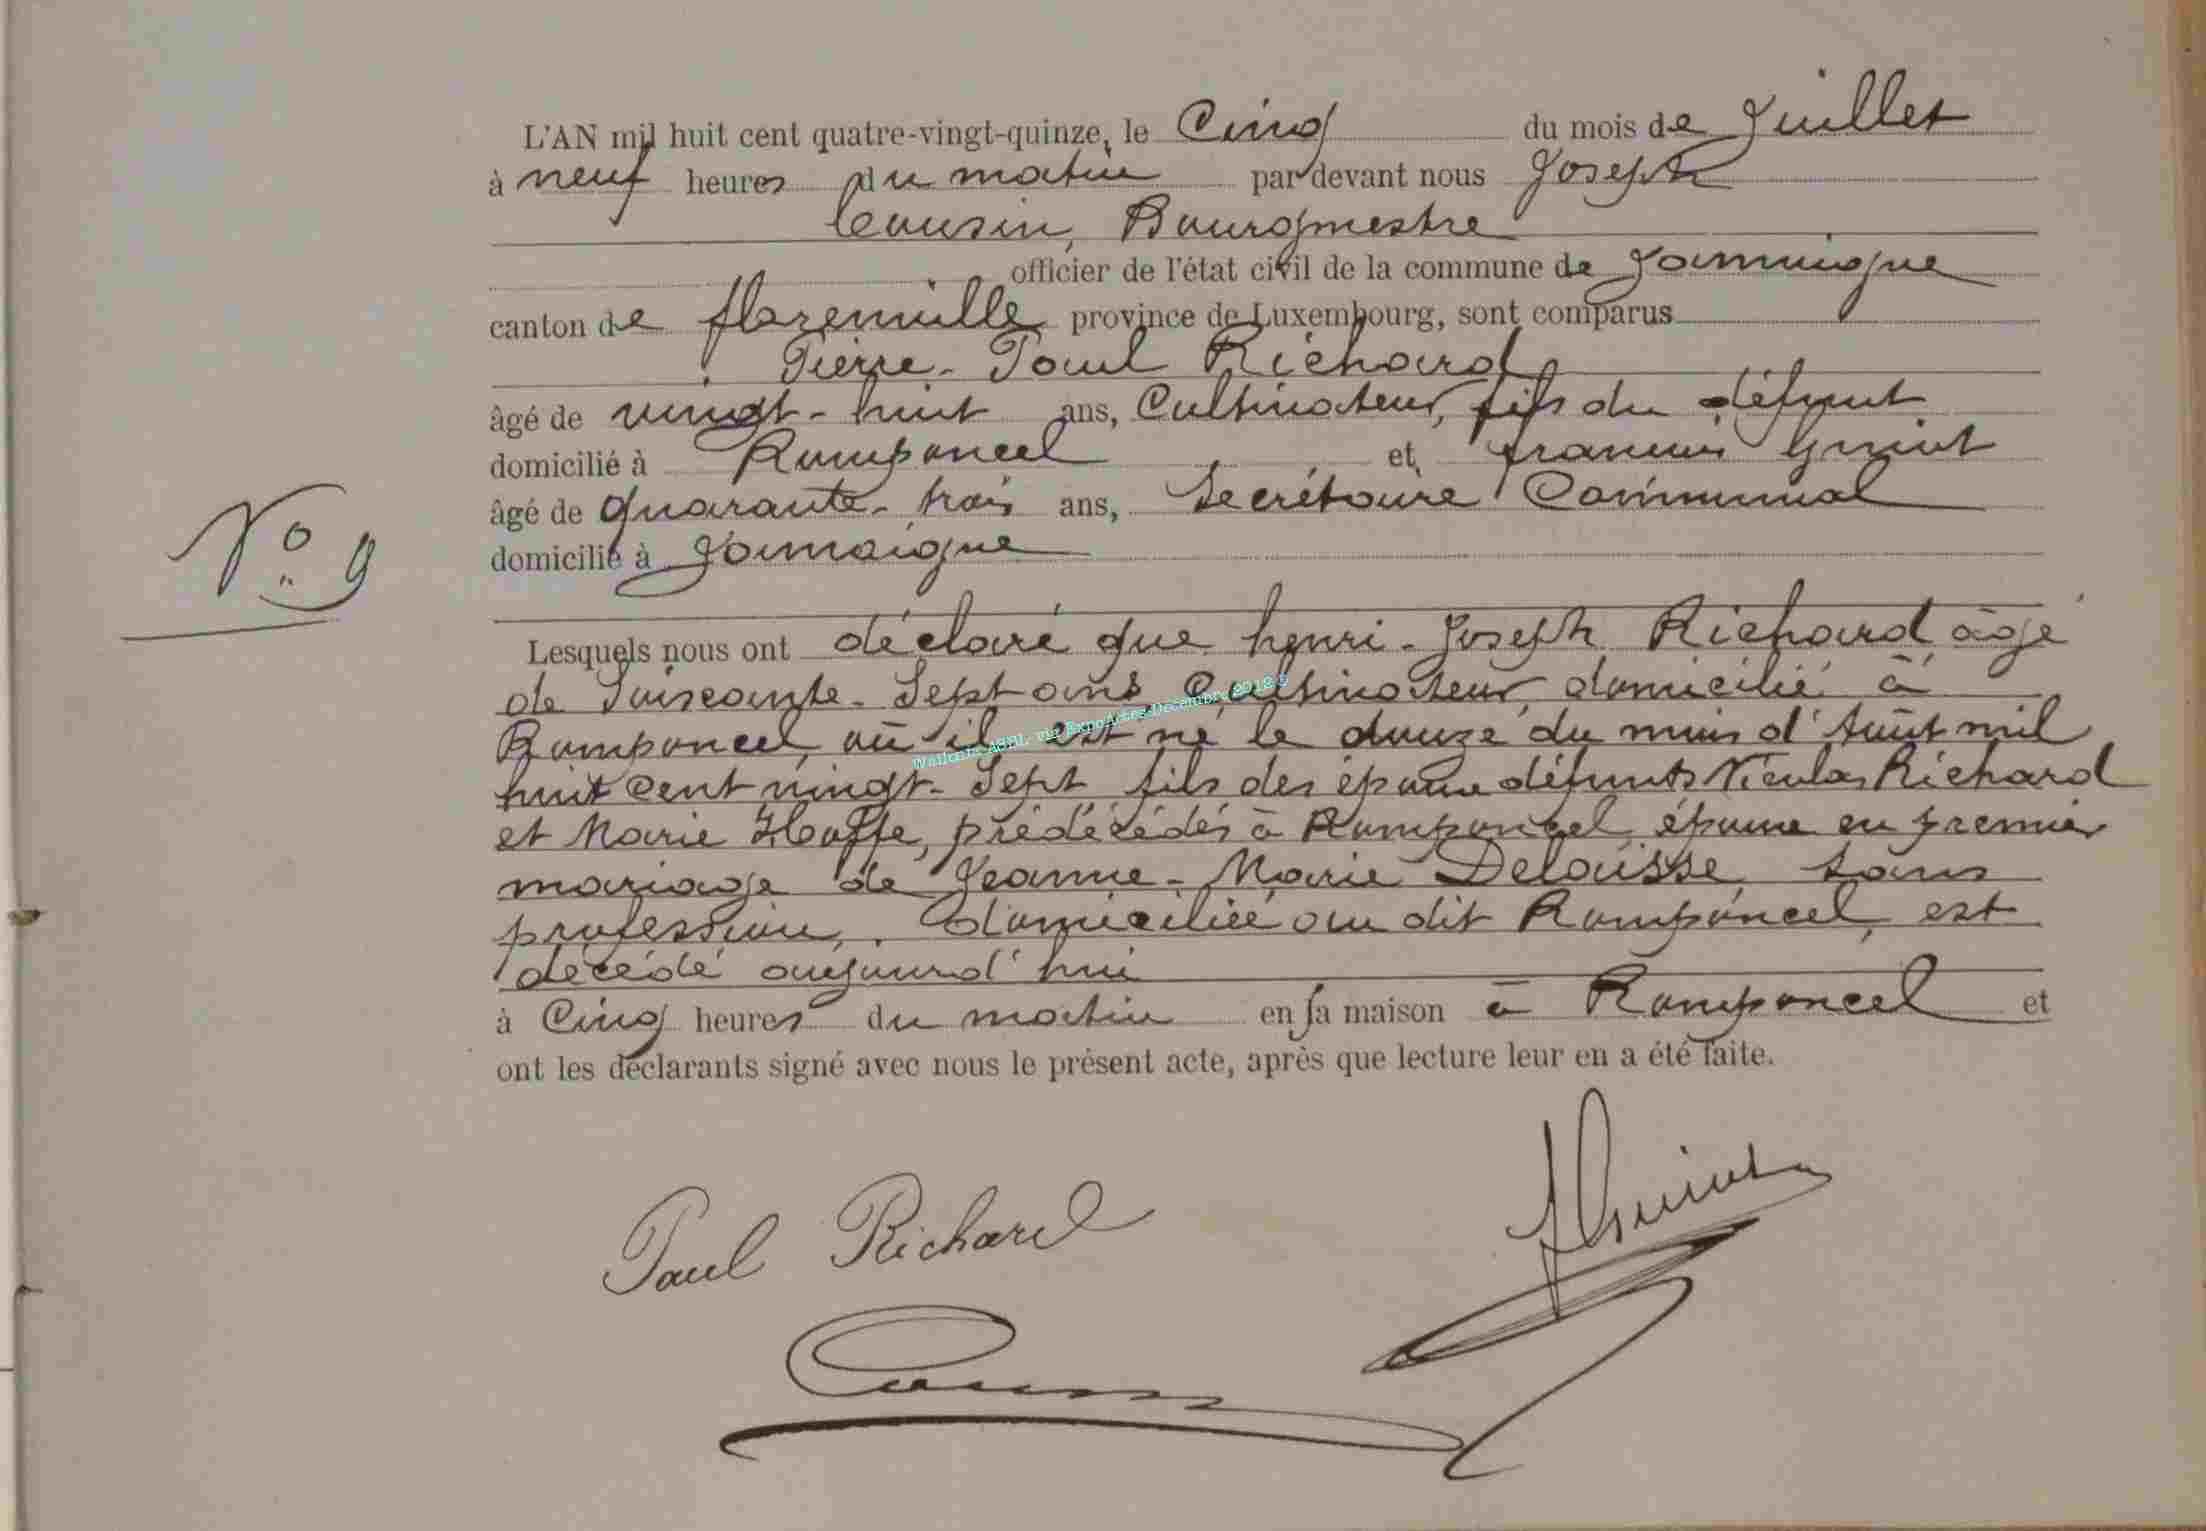 L'AN mil huit cent quatre-vingt-quinze, le Cinq du mois de Juillet
à neuf heures du matin par devant nous Joseph
Cousin, Bourgmestre
officier de l'état civil de la commune de Jamoigne
canton de florenville province de Luxembourg, sont comparus
Pierre-Paul Richard
âgé de vingt-huit ans, Cultivateur, fils du défunt
domicilié à Romponcel et francois Guiot
âgé de quarante-trois ans, Secrétaire Communal
domicilié à Jamoigne
No 9
Lesquels nous ont déclaré que henri-Joseph Richard âgé
de Soixante-Sept ans Cultivateur, domicilié à
Romponcel, où il est né le douze du mois d'Août mil
huit Cent vingt-Sept fils des époux défunts Nicolas Richard
et Marie Hoffe, prédécédés à Romponcel, époux en premier
mariage de Jeanne-Marie Delaisse, sans
profession, domiciliée au dit Romponcel, est
décédé aujourd'hui
à Cinq heures du matin en sa maison à Romponcel et
ont les déclarants signé avec nous le présent acte, après que lecture leur en a été faite.
Wallonia ASBL via ExpoActes Décembre 2018
Paul Richard